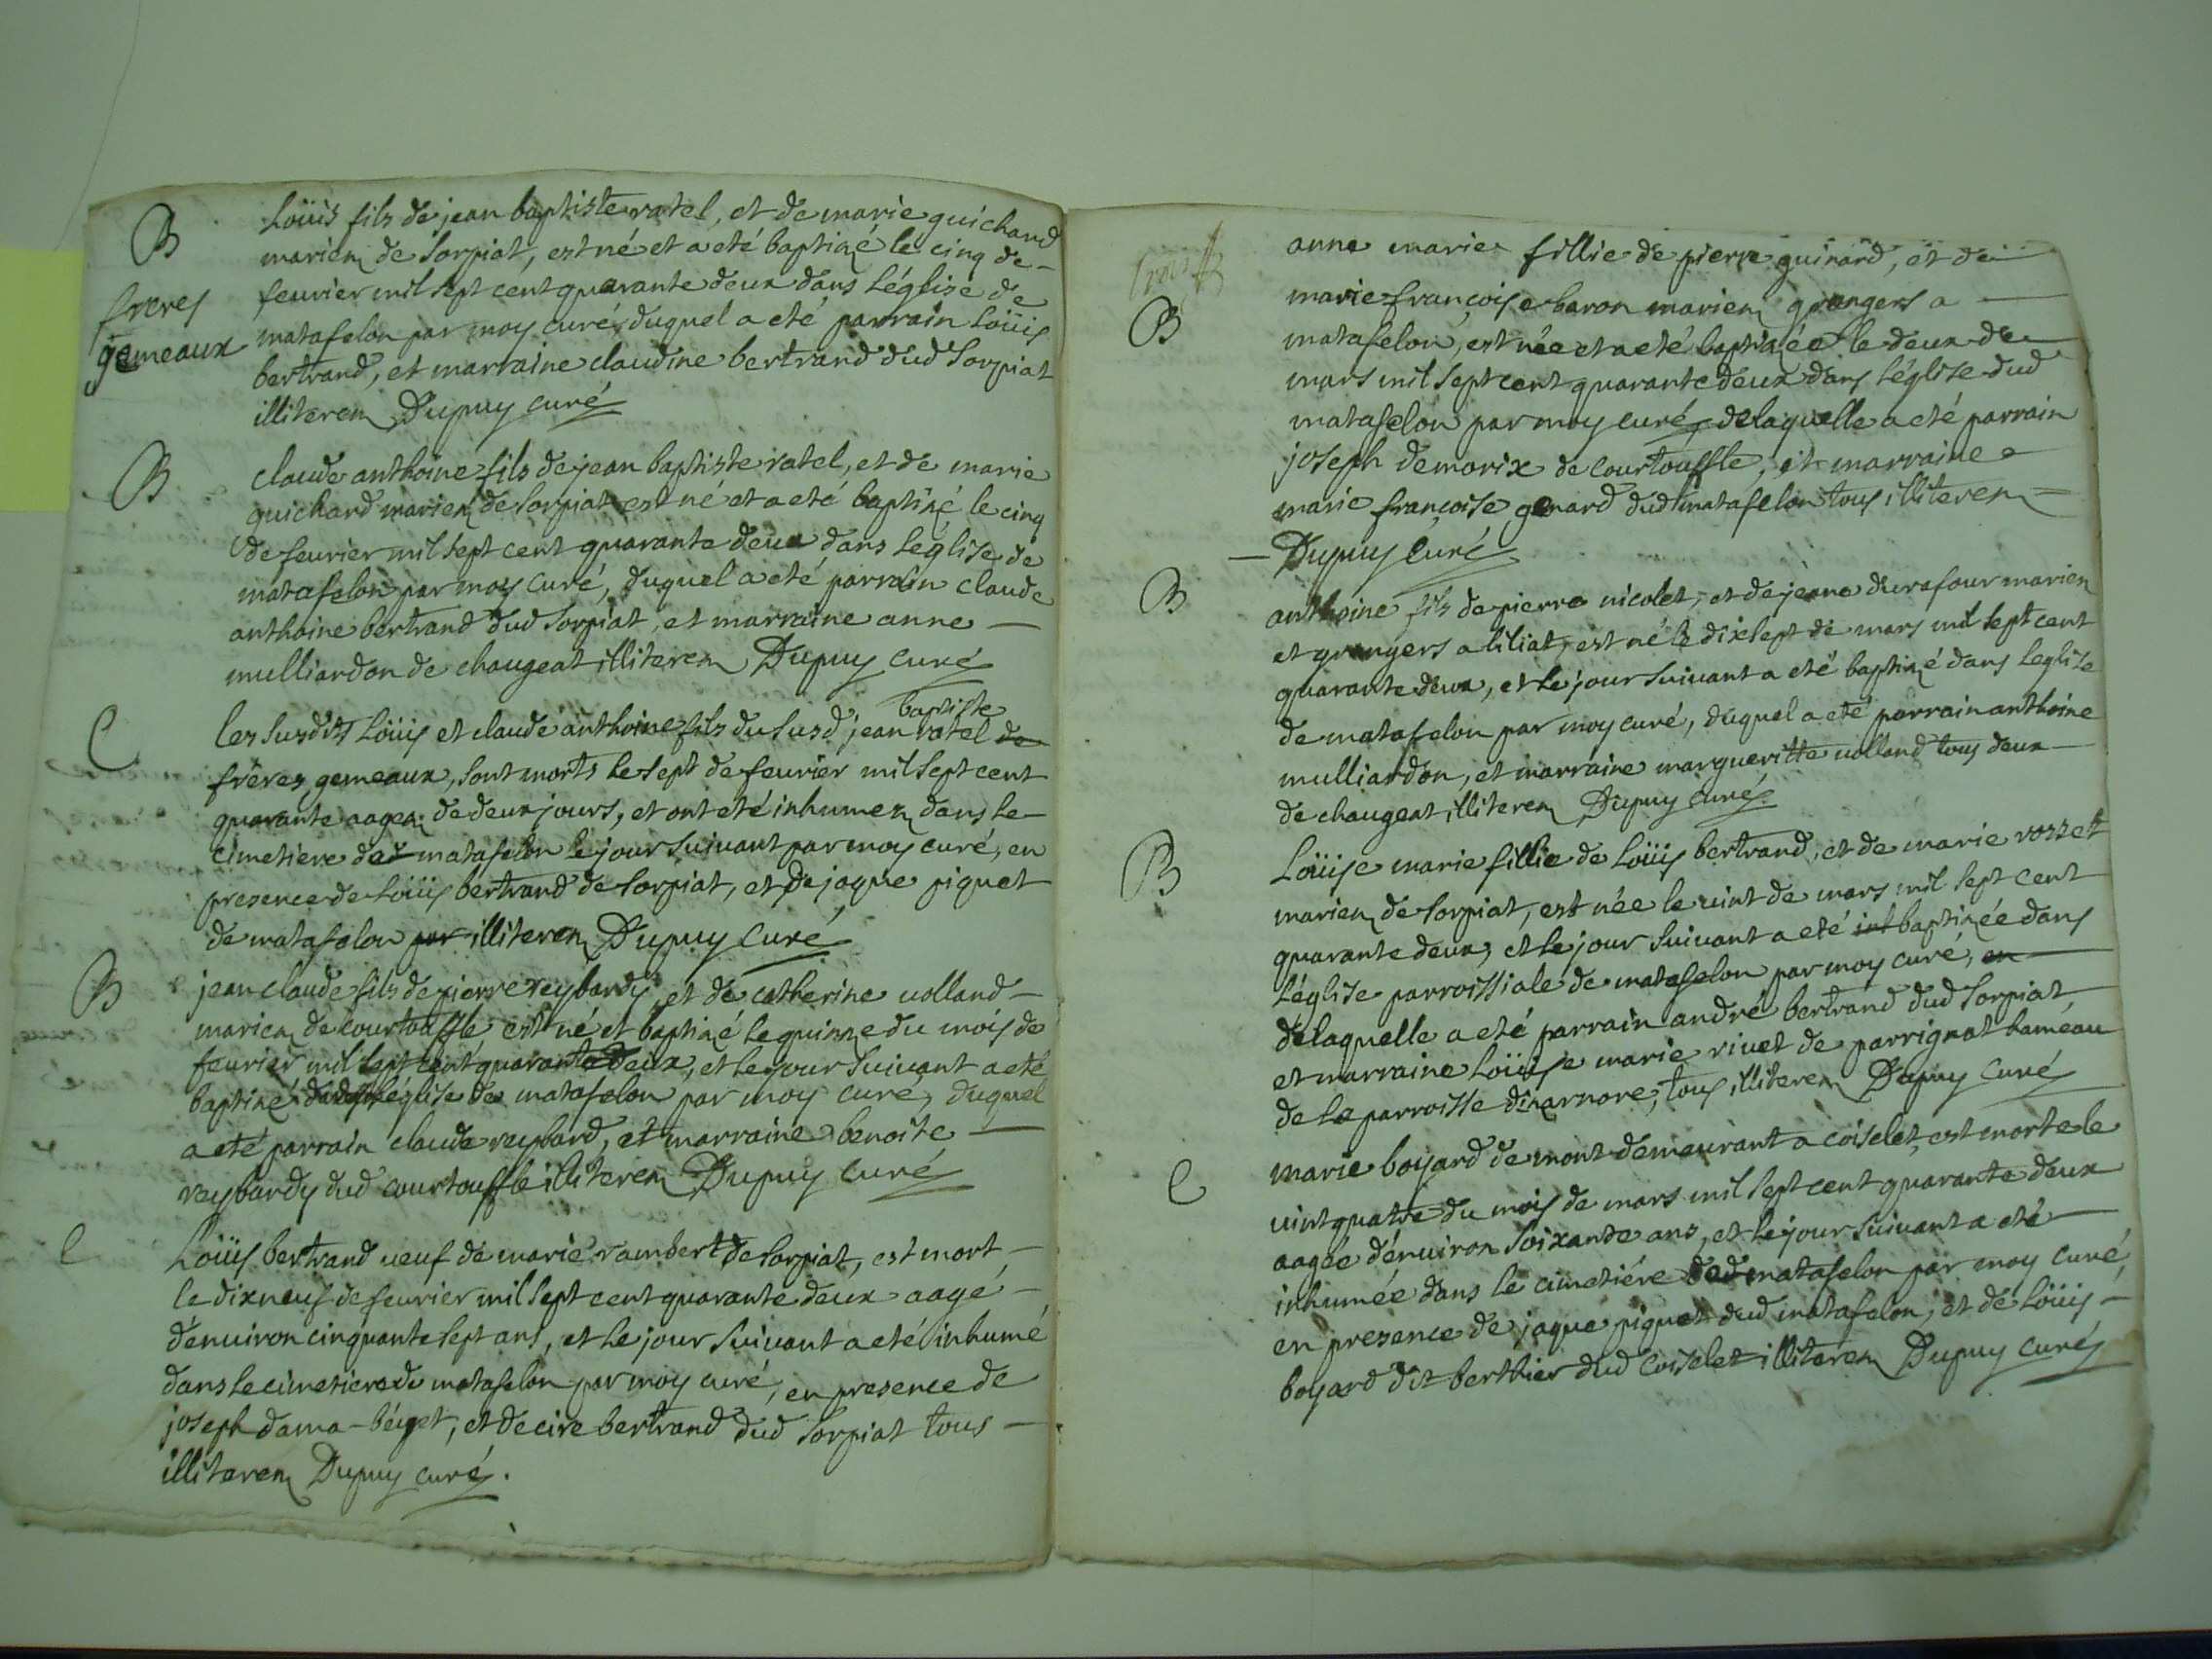 B
Loüis fils de jean baptiste ratel, et de marie guichard
mariez de sorpiat, est né et a eté baptizé le cinq de
freres
feurier mil sept cent quarante deux dans l'église de
gemeaux
matafelon par moy curé, duquel a eté parrain Loüis
bertrand, et marraine claudine bertrand dud sorpiat
illiterez Dupuy curé
B
claude anthoine fils de jean baptiste ratel, et de marie
guichard mariez de sorpiat est né et a eté baptizé le cinq
de feurier mil sept cent quarante deux dans l'église de
matafelon par moy curé, duquel a eté parrain claude
anthoine bertrand dud sorpiat, et marraine anne
mulliardon de chaugeat illiterez Dupuy curé
baptiste
C
les susdits Loüis et claude anthoine fils du susd jean ratel de
fréres gemeaux, sont morts le sept de feurier mil sept cent
quarante aagez de deux jours, et ont eté inhumez dans le
cimetiere de matafelon le jour suiuant par moy curé, en
presence de Loüis bertrand de sorpiat, et de jaque piquet
de matafelon par illiterez Dupuy curé
B
jean claude fils de pierre reybardy, et de catherine uolland
mariez de courtouffle est né et baptizé le quinze du mois de
feurier mil sept cent quarante deux, et le jour suiuant a eté
baptizé dans l'église de matafelon par moy curé, duquel
a eté parrain claude reybard, et marraine benoite
reybardy dud courtouffle illiterez Dupuy curé
C
Loüis bertrand ueuf de marie rambert de sorpiat, est mort
le dixneuf de feurier mil sept cent quarante deux aagé
d'enuiron cinquante sept ans, et le jour suiuant a eté inhumé
dans le cimetiere de matafelon par moy curé, en presence de
joseph dama-béyet, et de cire bertrand dud sorpiat tous
illiterez Dupuy curé.
anne marie fillie de pierre guinard, et de
B
marie françoise baron mariez grangers a
matafelon, est née et a eté baptizée le deux de
mars mil sept cent quarante deux dans l'église dud
matafelon par moy curé, delaquelle a eté parrain
joseph demorix de courtouffle, et marraine
marie françoise genard dud matafelon tous illiterez
Dupuy curé
B
anthoine fils de pierre nicolet, et de jeane durafour mariez
et grangers a siliat, est né le dix sept de mars mil sept cent
quarante deux, et le jour suiuant a eté baptizé dans leglise
de matafelon par moy curé, duquel a eté parrain anthoine
mulliardon, et marraine margueritte uolland tous deux
de chaugeat illiterez Dupuy curé
B
Loüise marie fillie de Loüis bertrand, et de marie rosset
mariez de sorpiat, est née le uint de mars mil sept cent
quarante deux, et le jour suiuant a eté int baptizée dans
l'église parroissiale de matafelon par moy curé, en
delaquelle a eté parrain andré bertrand dud sorpiat
et marraine Loüise marie riuet de parrignat haméau
de la parroisse d'izarnore, tous illiterez Dupuy curé
C
marie boyard de mont demeurant a coiselet, est morte le
uint quatre du mois de mars mil sept cent quarante deux
aagée d'enuiron soixante ans, et le jour suiuant a eté
inhumée dans le cimetiére dud matafelon par moy curé,
en presence de jaque piquet dud matafelon, et de Loüis
boyard dit berthier dud coiselet illiterez Dupuy curé